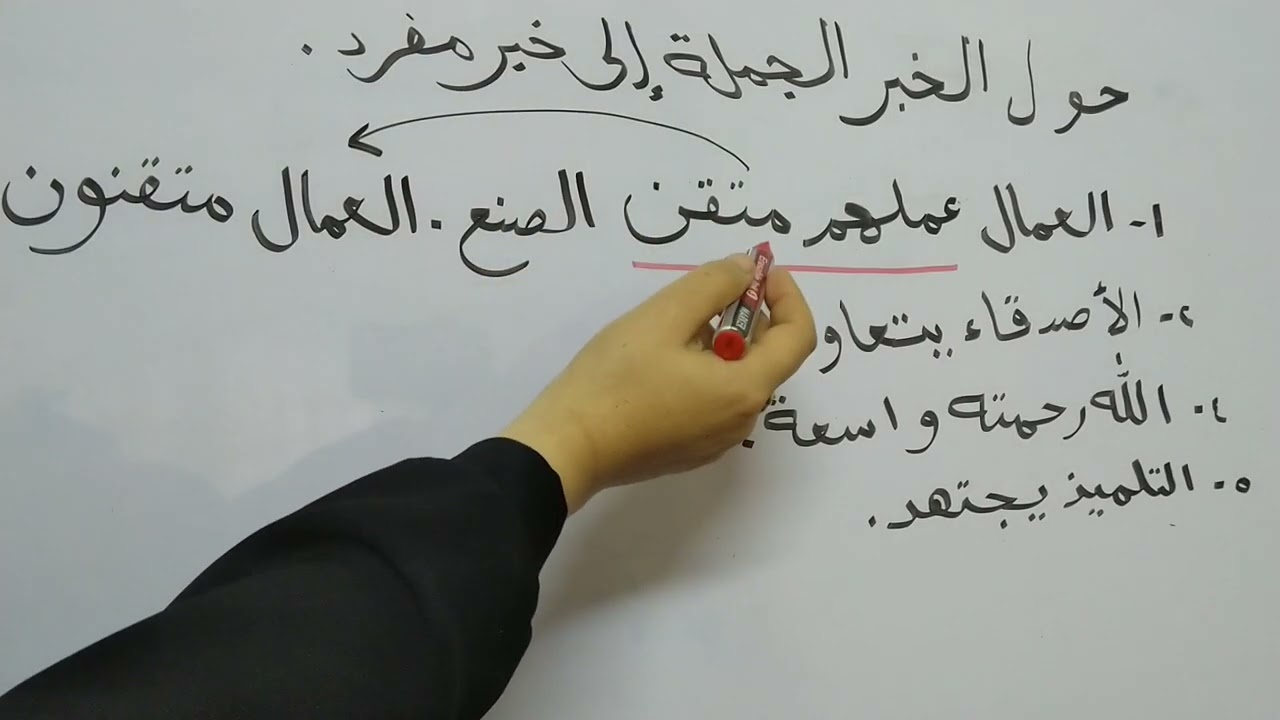 حول الخبر الجملة إلى خبر مفرد .
١- العمال عملهم متقن الصنع . العمال متقنون
٢- الأصدقاء يتعاو
٤- الله رحمته واسعة .
٥- التلميذ يجتهد .